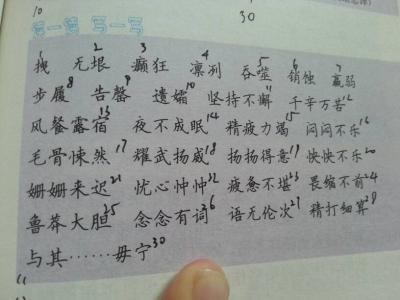 10
30
读一读 写一写
拽1 无垠2 癫狂3 凛冽4 吞噬5 销蚀6 羸弱7
步履8 告罄9 遗孀10 坚持不懈11 千辛万苦12
风餐露宿13 夜不成眠14 精疲力竭15 闷闷不乐16
毛骨悚然17 耀武扬威18 扬扬得意19 怏怏不乐20
姗姗来迟21 忧心忡忡22 疲惫不堪23 畏缩不前24
鲁莽大胆25 念念有词26 语无伦次27 精打细算28
与其……毋宁30